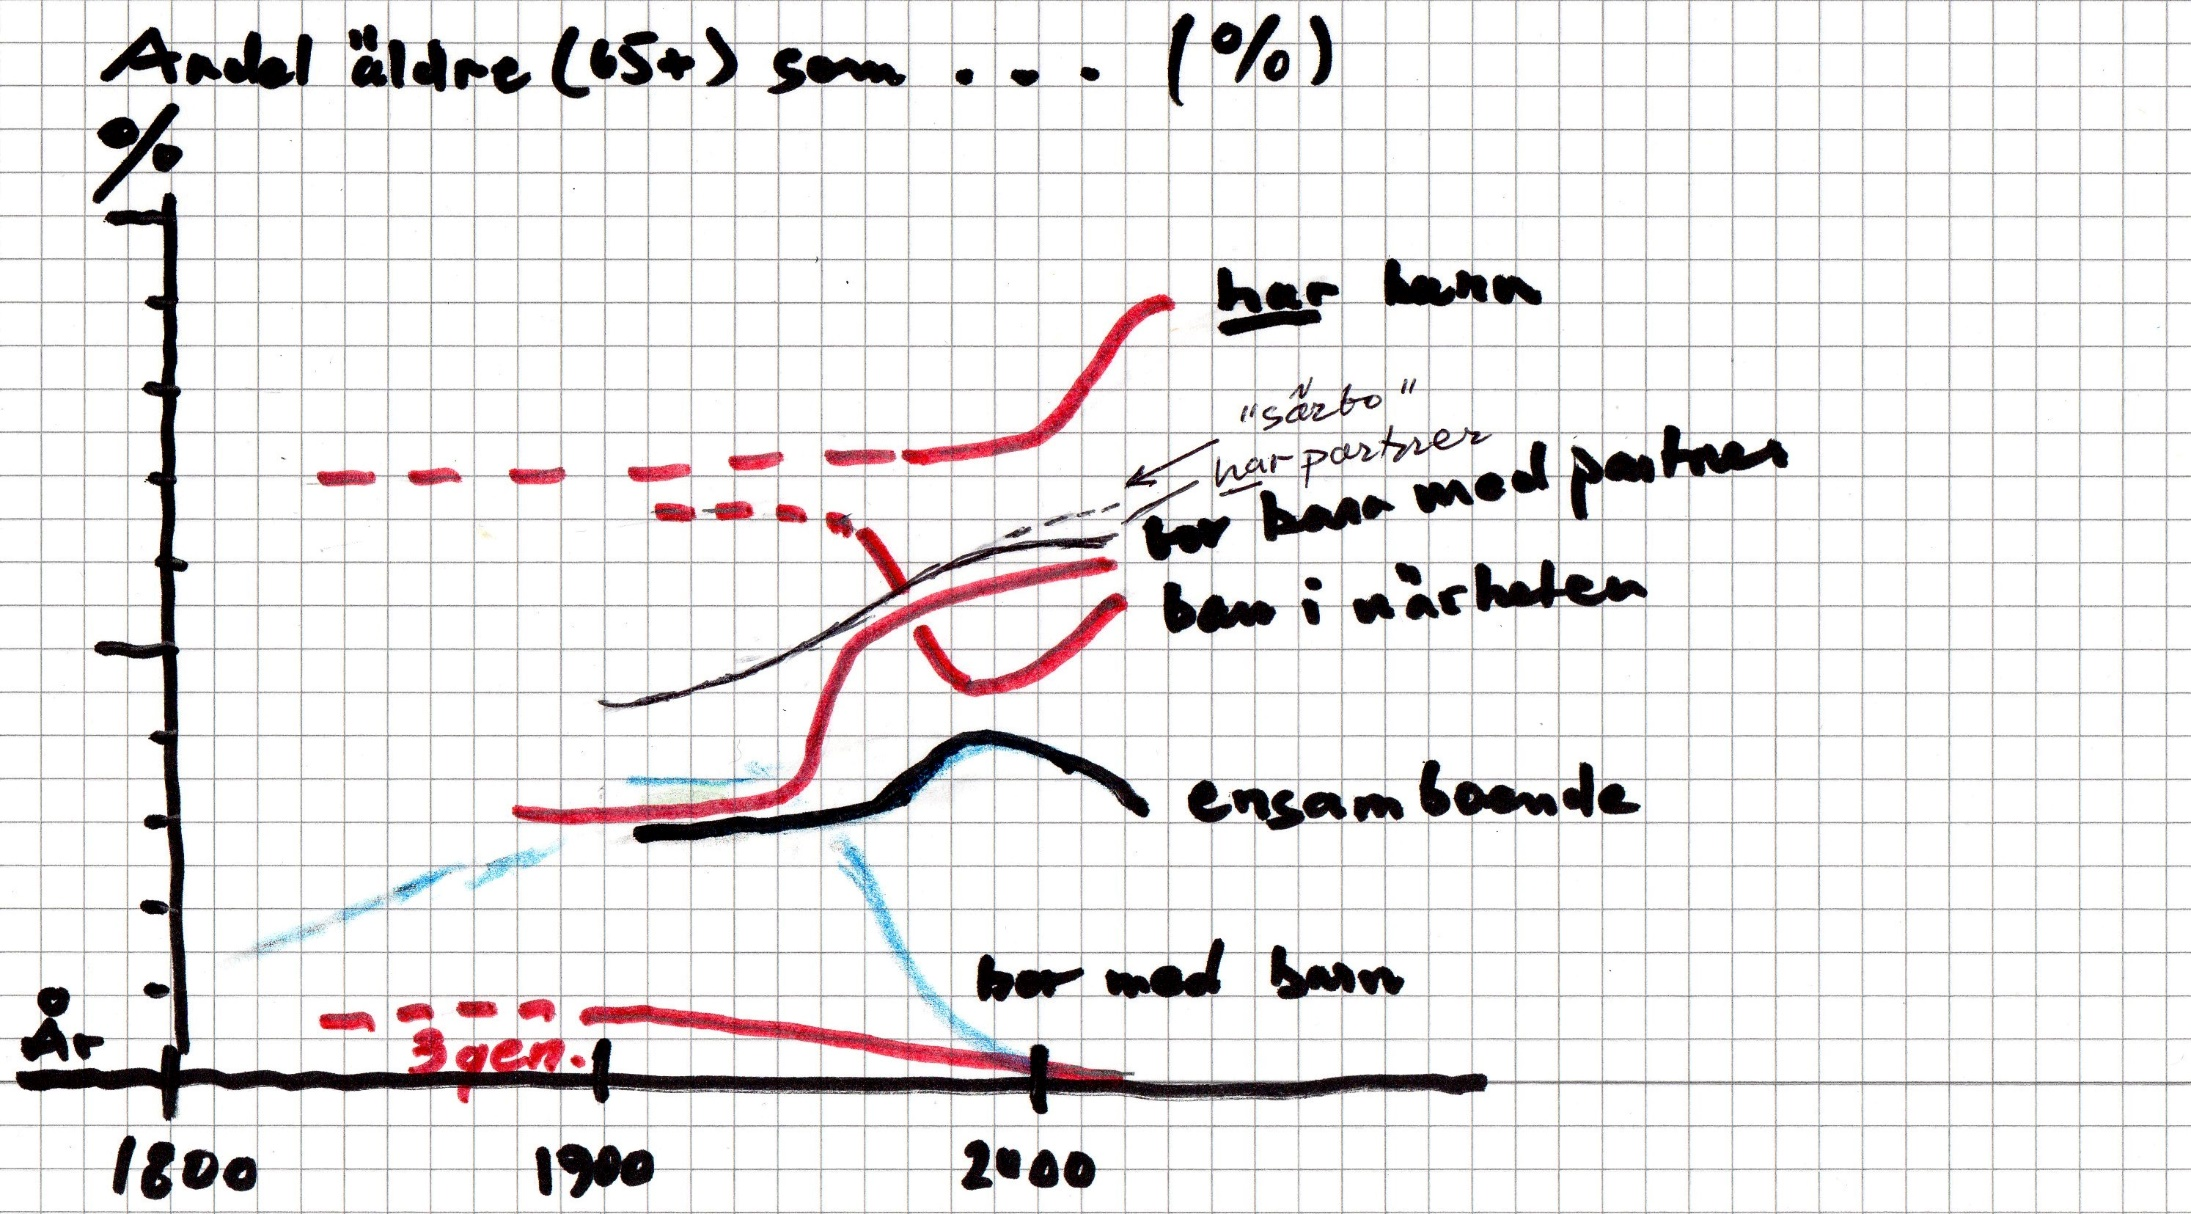 Andel äldre (65+) som . . . (%)
%
har barn
"särbo"
har partner
bor bara med partner
barn i närheten
ensamboende
bor med barn
År
3 gen.
1800 1900 2000